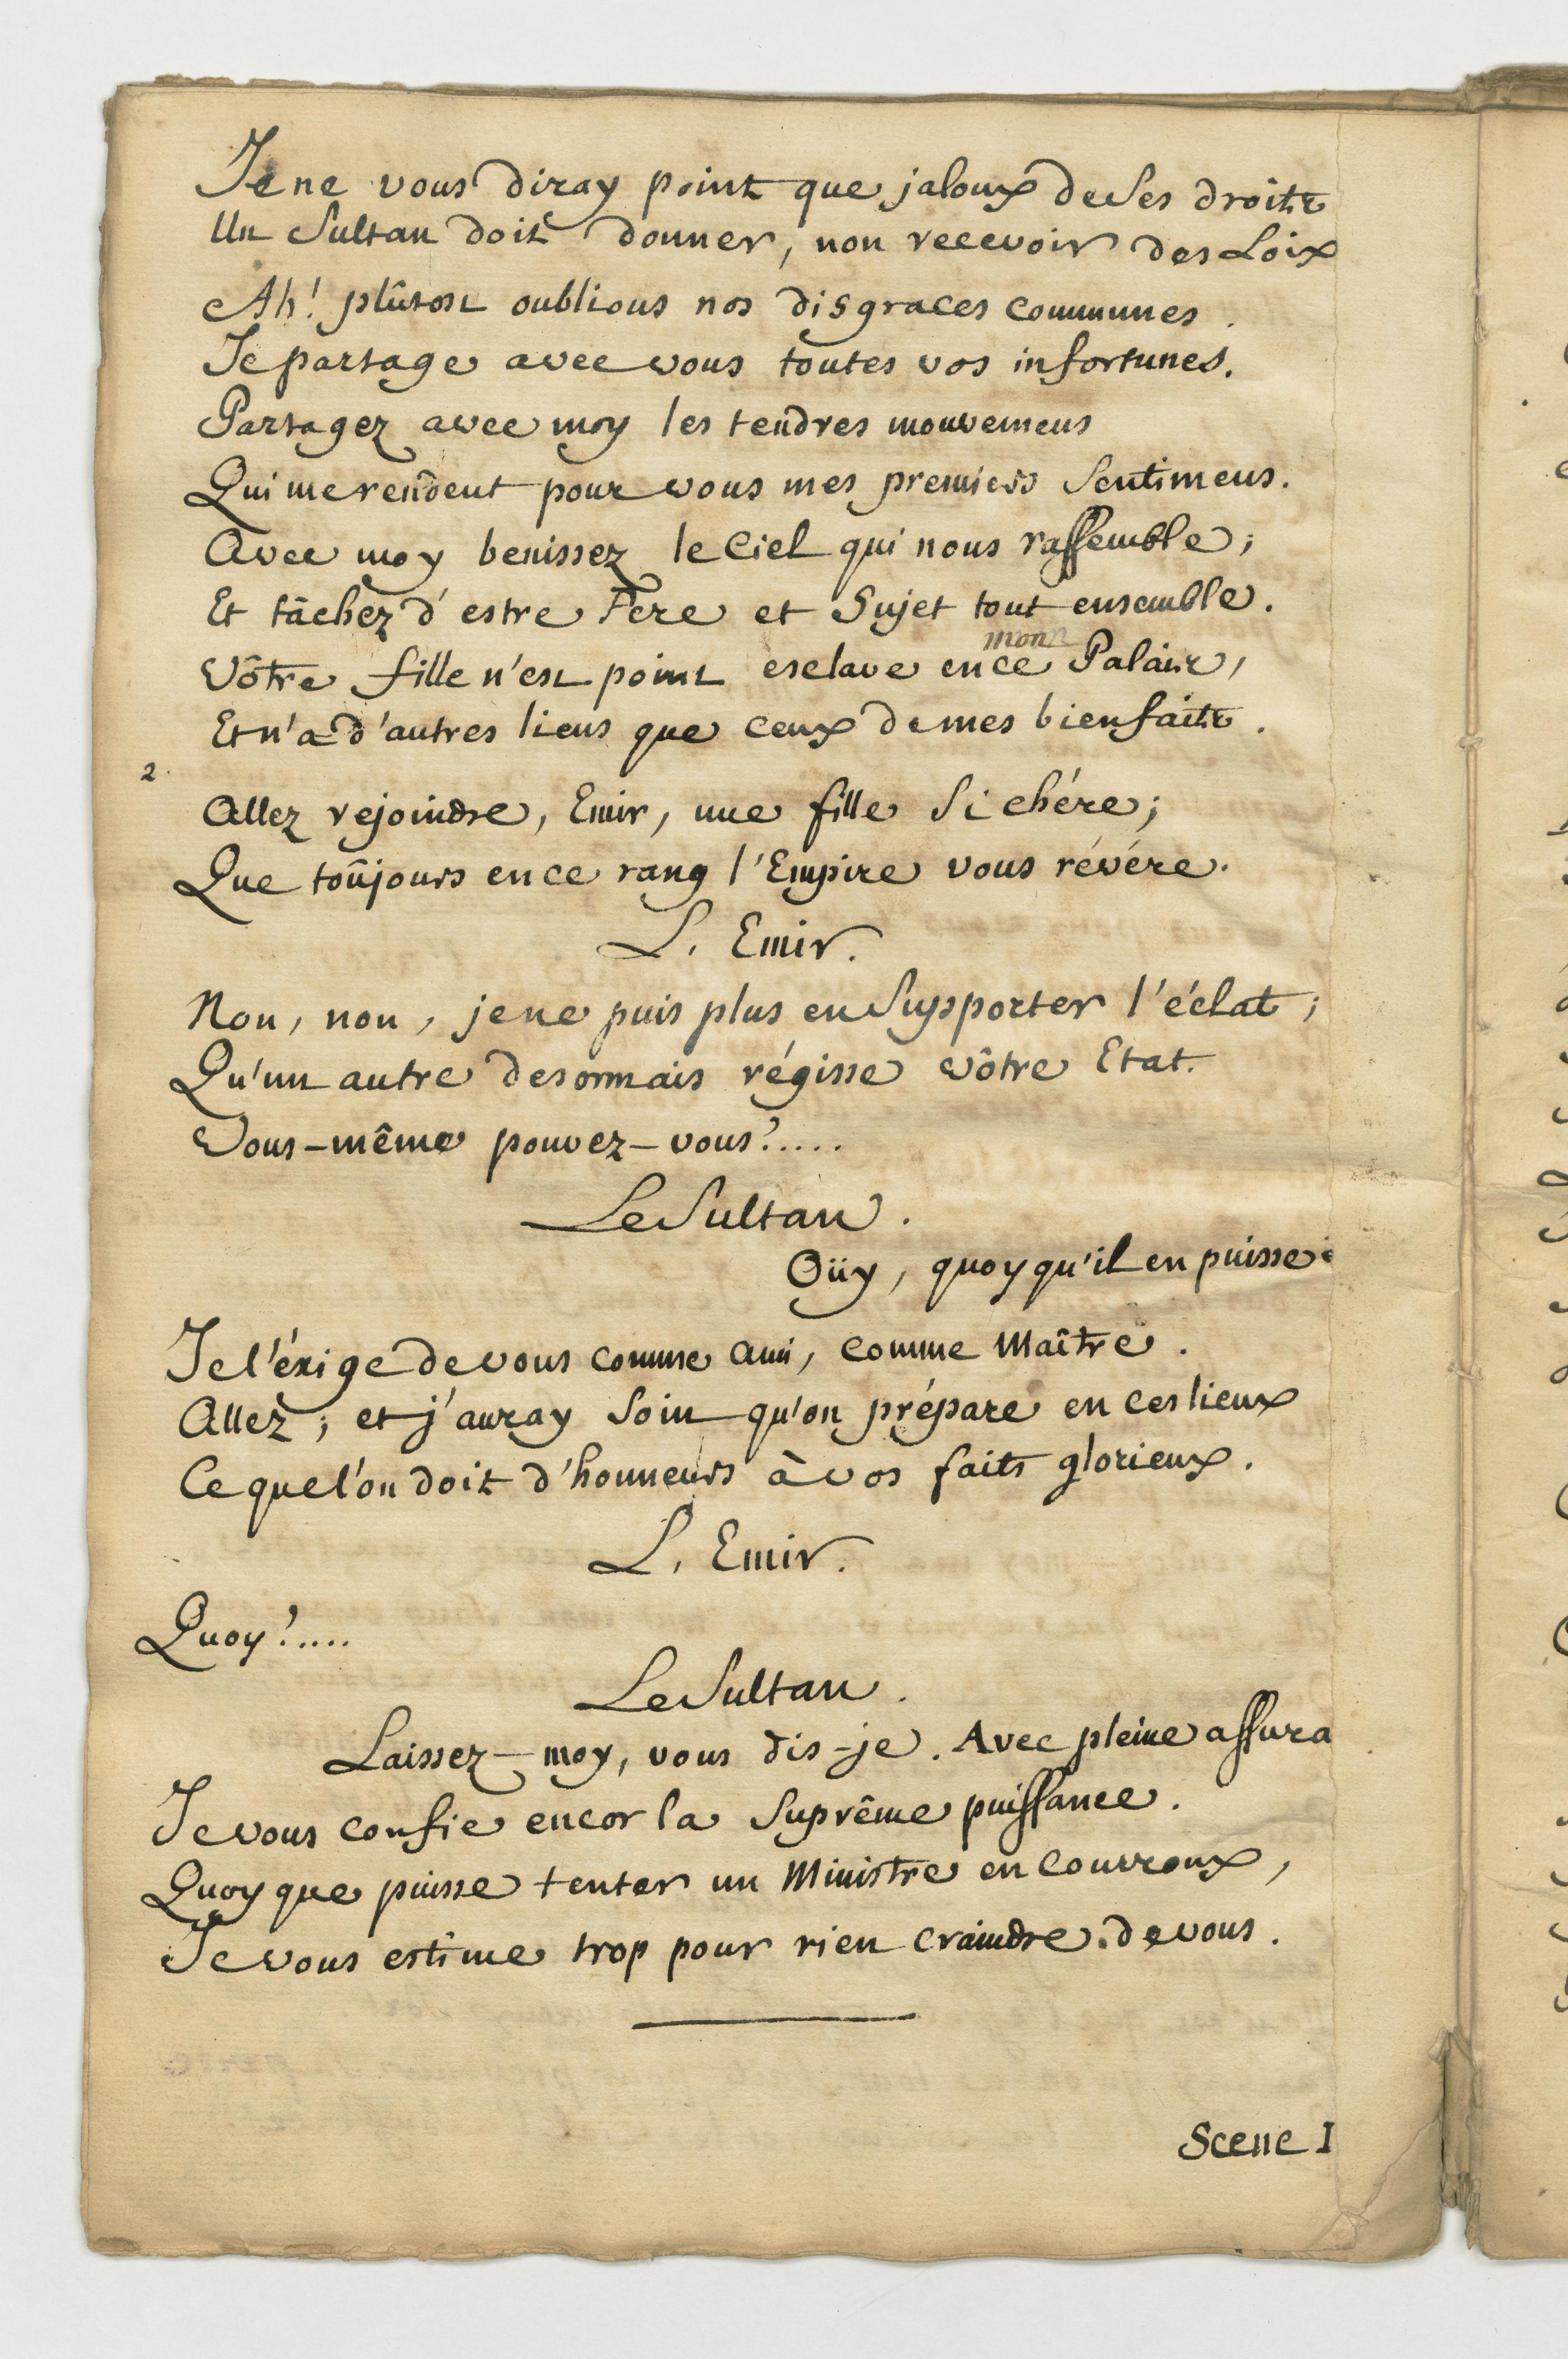 Je ne vous diray point que jaloux de ses droits
Un Sultan doit donner, non recevoir des Loix
Ah! plûtost oublions nos disgraces communes.
Je partage avec vous toutes vos infortunes.
Partagez avec moy les tendres mouvemens
Qui me rendent pour vous mes premiers sentimens.
Avec moy benissez le Ciel qui nous rassemble;
Et tâchez d'estre Pere et Sujet tout ensemble.
mon
Vôtre fille n'est point esclave en ce Palais,
Et n'a d'autres liens que ceux de mes bienfaits.
2.
Allez rejoindre, Emir, une fille si chére;
Que toûjours en ce rang l'Empire vous révére.
L'Emir.
Non, non, je ne puis plus en supporter l'éclat;
Qu'un autre desormais régisse vôtre Etat.
Vous-même pouvez-vous?.....
Le Sultan.
Oüy, quoy qu'il en puisse
Je l'éxige de vous comme ami, comme Maître.
Allez; et j'auray soin qu'on prépare en ces lieux
Ce que l'on doit d'honneurs à vos faits glorieux.
L'Emir.
Quoy?.....
Le Sultan.
Laissez-moy, vous dis-je. Avec pleine assura
Je vous confie encor la suprême puissance.
Quoy que puisse tenter un Ministre en courroux,
Je vous estime trop pour rien craindre de vous.
Scene I